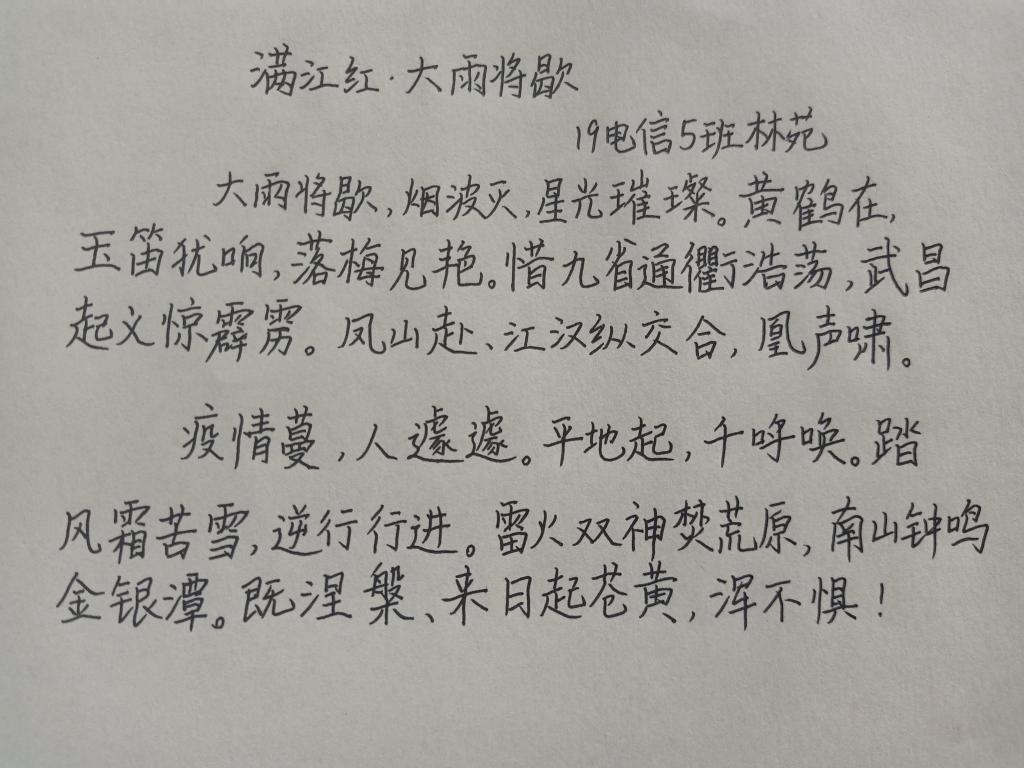 满江红·大雨将歇
19电信5班林苑
大雨将歇,烟波灭,星光璀璨。黄鹤在,
玉笛犹响,落梅见艳。惜九省通衢浩荡,武昌
起义惊霹雳。凤山赴、江汉纵交合,凰声啸。
疫情蔓,人遽遽。平地起,千呼唤。踏
风霜苦雪,逆行行进。雷火双神焚荒原,南山钟鸣
金银潭。既涅槃、来日起苍黄,浑不惧!